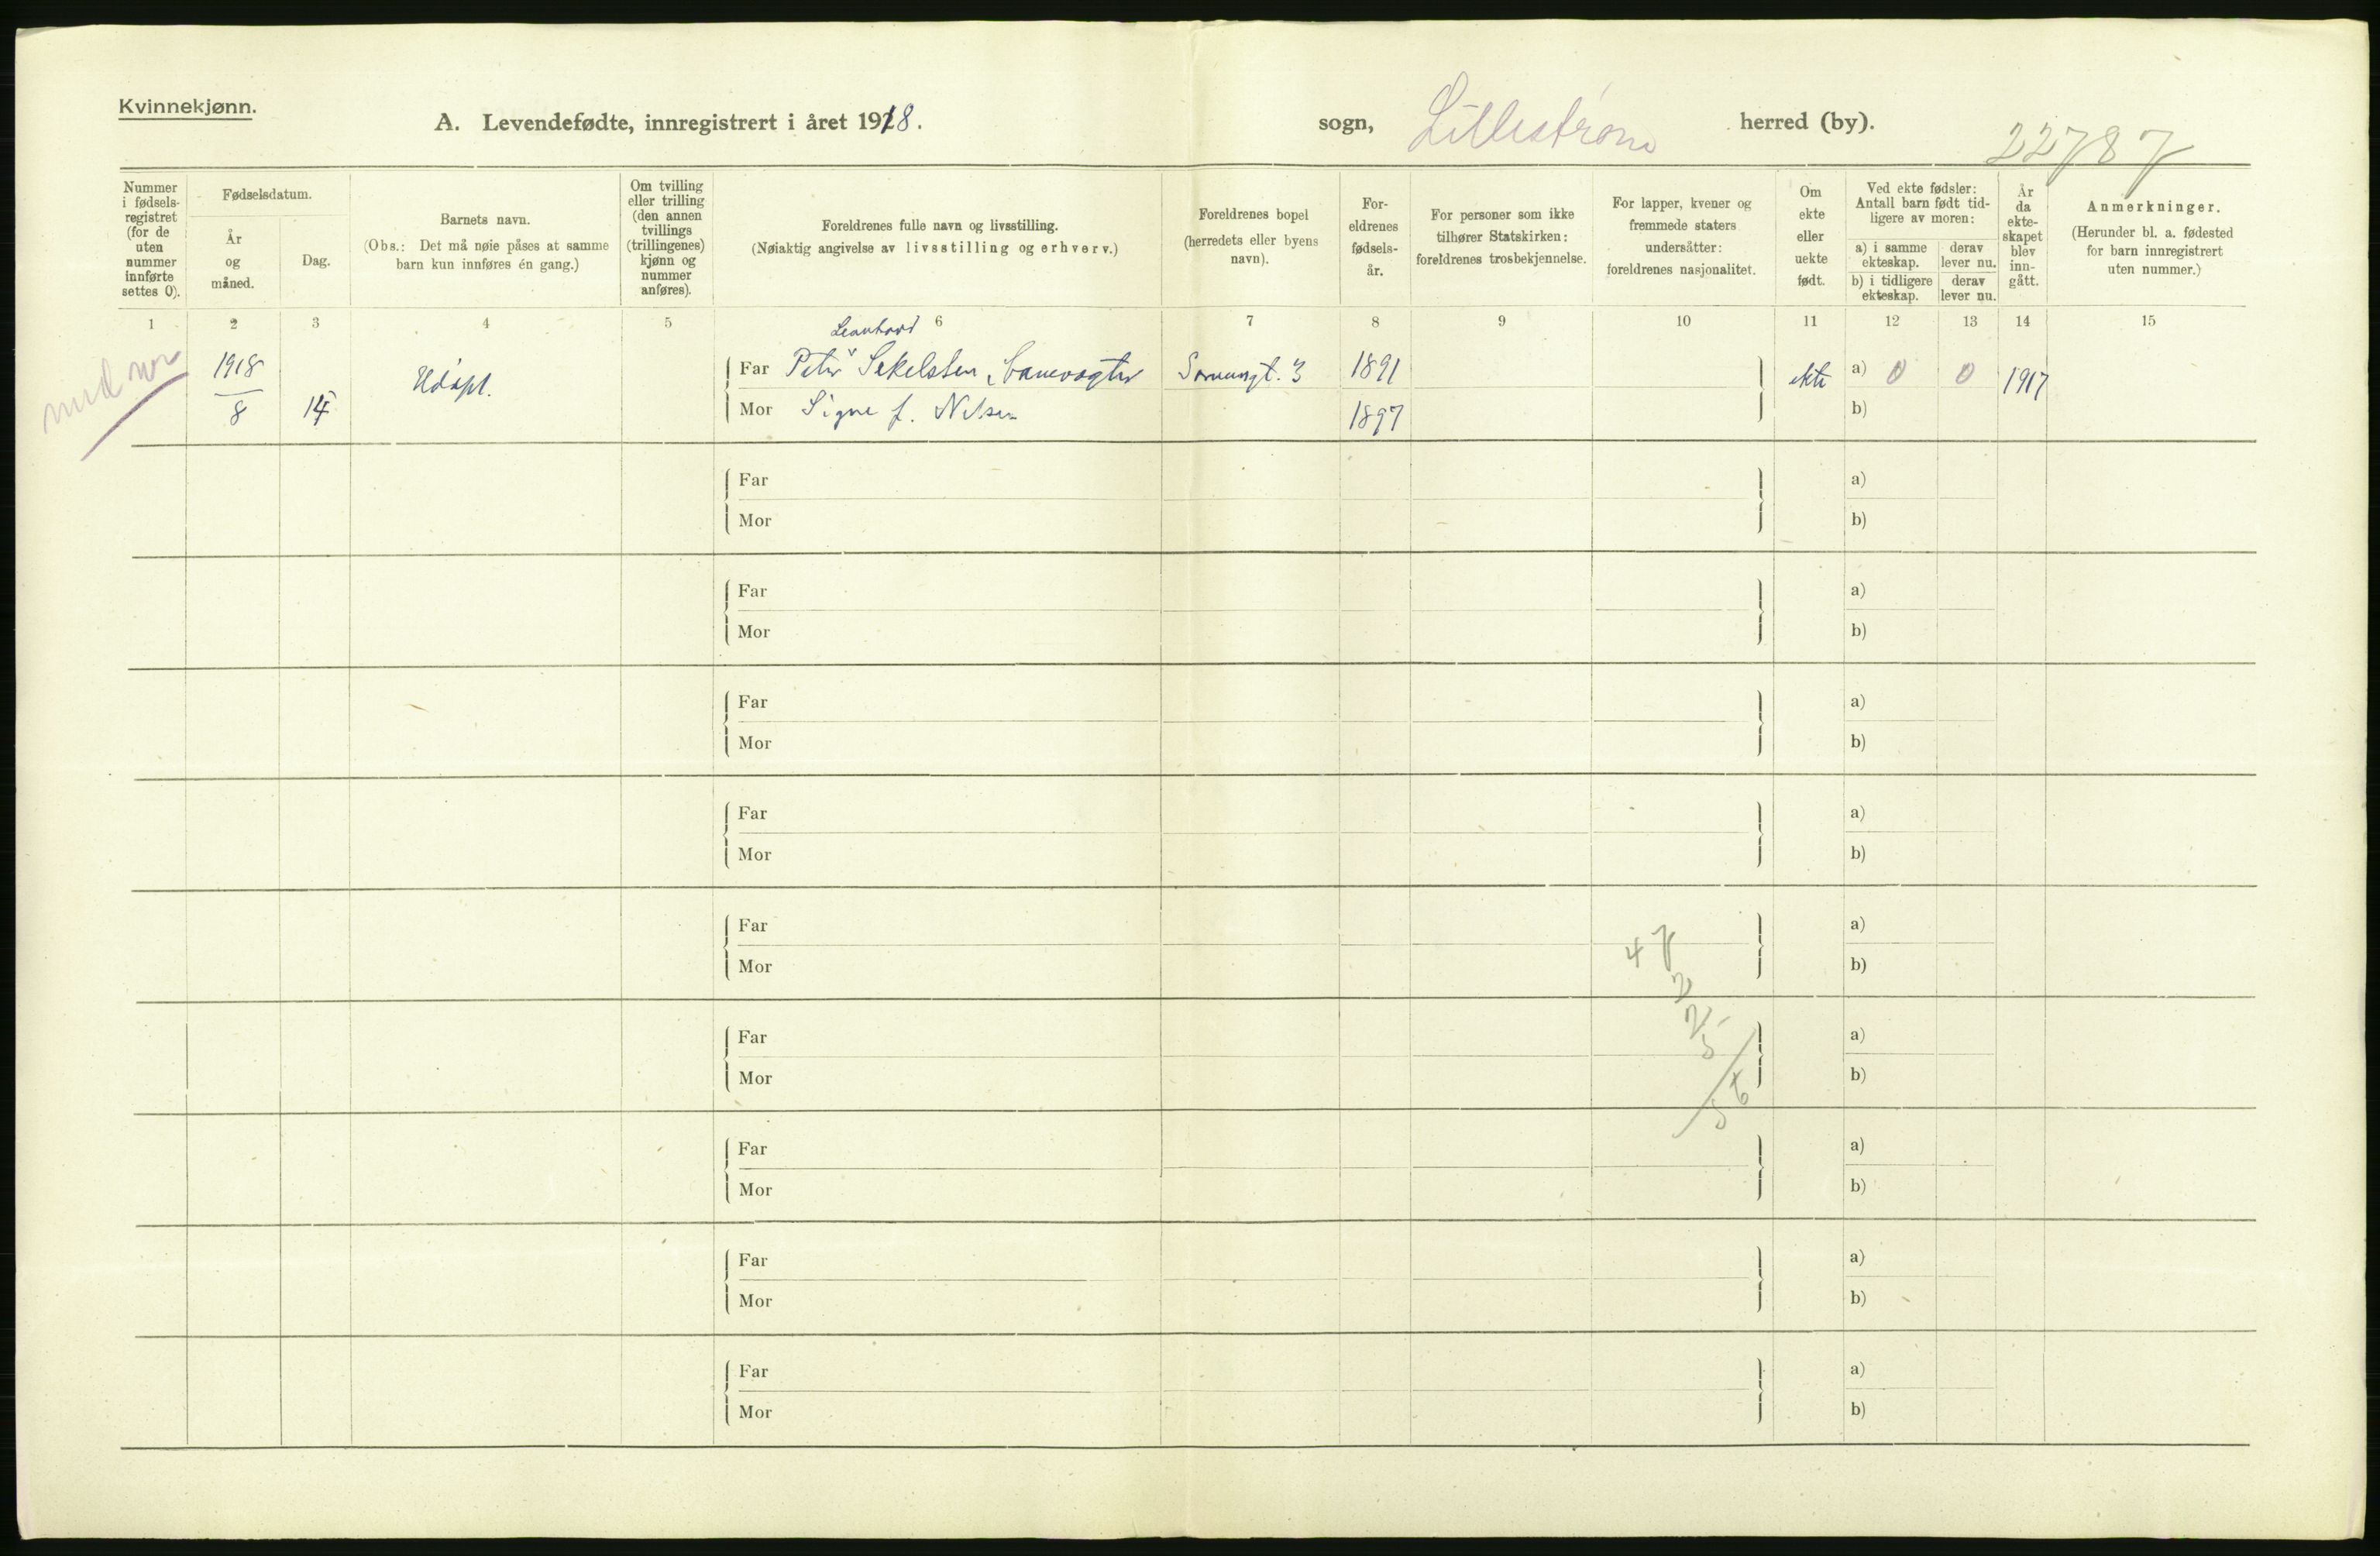 Kvinnekjønn.
A. Levendefødte, innregistrert i året 1918.
sogn, Lillestrøm herred (by).
22787
Nummer i fødsels-registret (for de uten nummer innførte settes 0).
Fødselsdatum.
År og måned.
Dag.
Barnets navn.
(Obs.: Det må nøie påses at samme barn kun innføres én gang.)
Om tvilling eller trilling (den annen tvillings (trillingenes) kjønn og nummer anføres).
Foreldrenes fulle navn og livsstilling.
(Nøiaktig angivelse av livsstilling og erhverv.)
Foreldrenes bopel (herredets eller byens navn).
For-eldrenes fødsels-år.
For personer som ikke tilhører Statskirken: foreldrenes trosbekjennelse.
For lapper, kvener og fremmede staters undersåtter: foreldrenes nasjonalitet.
Om ekte eller uekte født.
Ved ekte fødsler: Antall barn født tid-ligere av moren:
a) i samme ekteskap.
derav lever nu.
b) i tidligere ekteskap.
derav lever nu.
År da ekte-skapet blev inn-gått.
Anmerkninger.
(Herunder bl. a. fødested for barn innregistrert uten nummer.)
1 2 3 4 5 6 7 8 9 10 11 12 13 14 15
Leonhard
1918 Udøpt. Far Peter Sekelsten, banevogter 3 1891 ekte a) 0 0 1917
8 14 Mor Signe f. Nilsen 1897 b)
Far a)
Mor b)
Far a)
Mor b)
Far a)
Mor b)
Far a)
Mor b)
Far a)
Mor b)
Far a)
Mor b)
Far a)
Mor b)
Far a)
Mor b)
Far a)
Mor b)